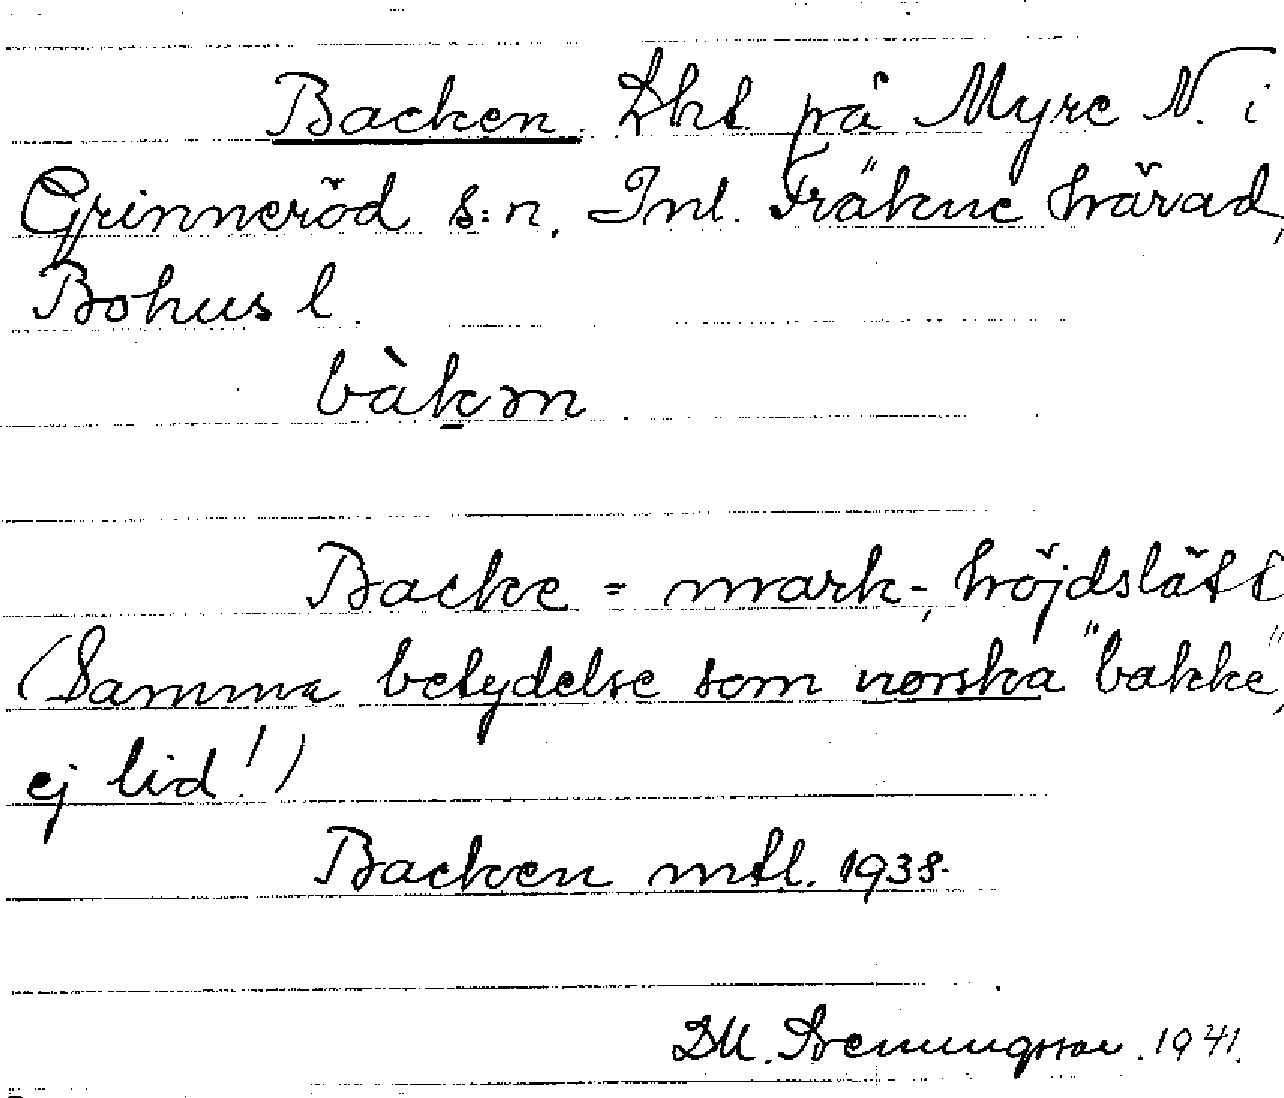 Backen. Lht på Myre N. i
Grinneröd s:n, Inl. Fräkne härad,
Bohus l.
bàkɱ
Backe = mark-, höjdslätt
(Samma betydelse som norska "bakke",
ej lid!)
Backen mtl. 1938.
1941.